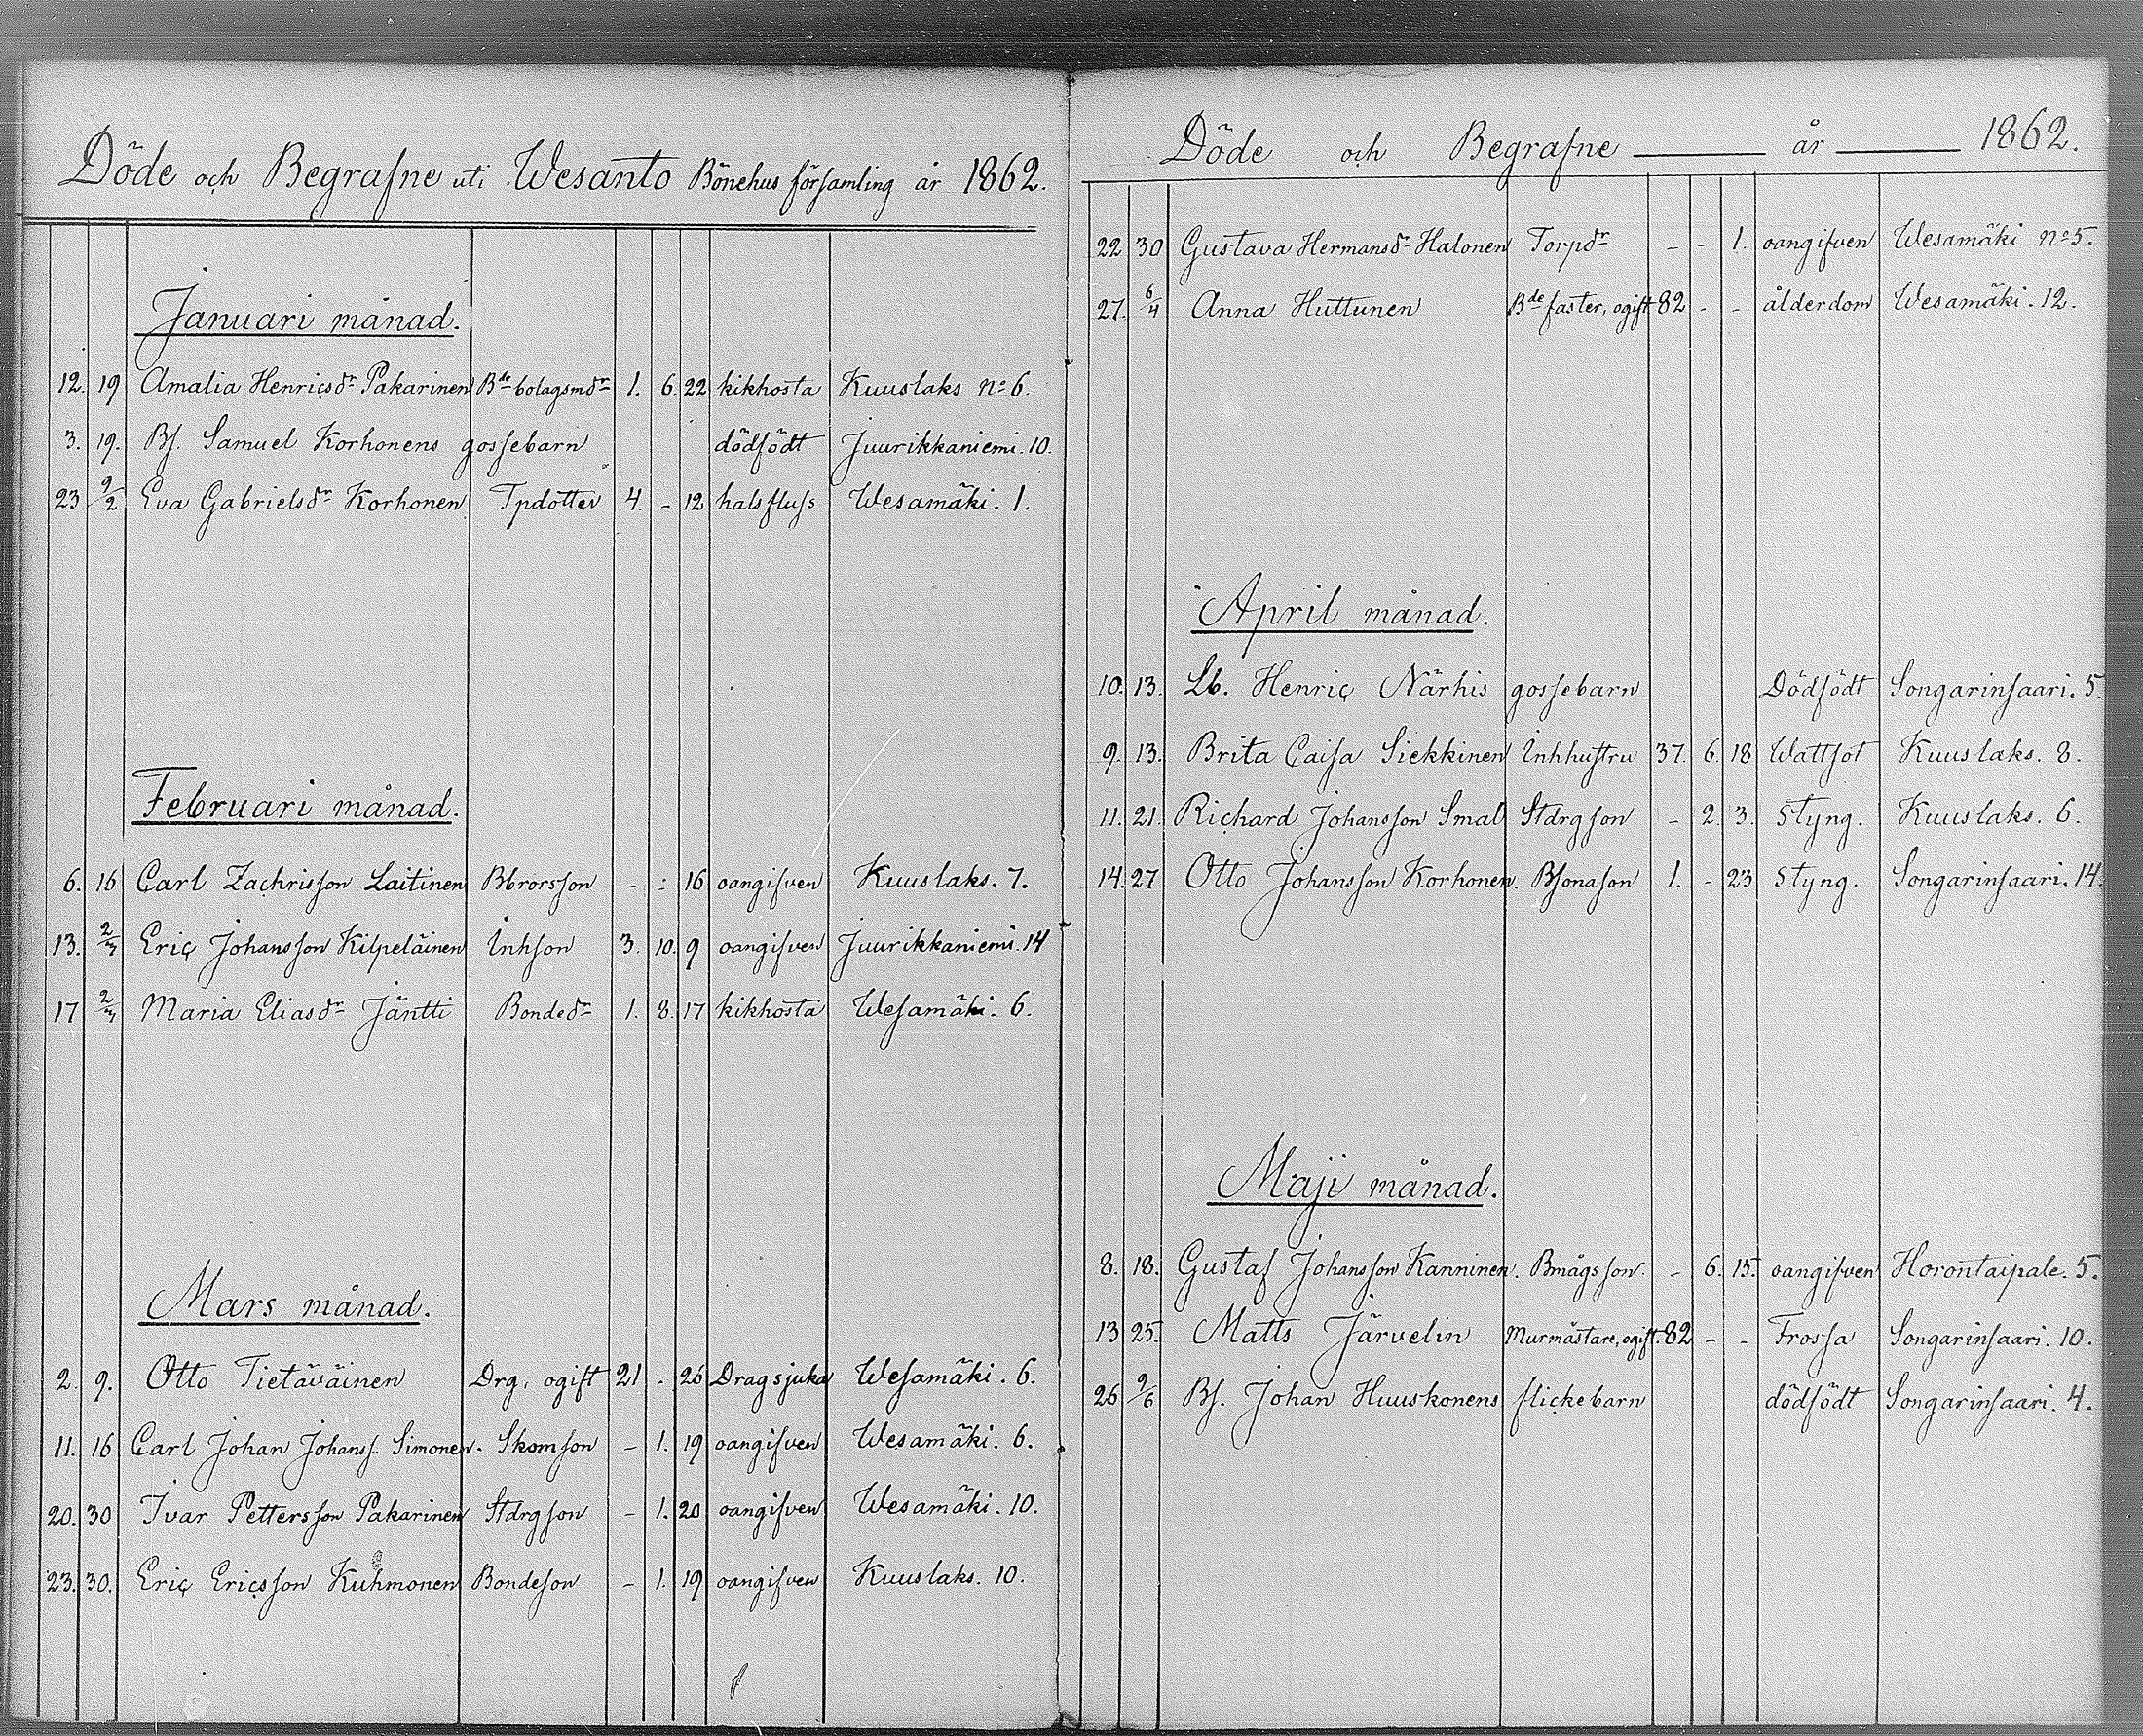 Döde och Begrafne uti Wesanto Bönehus församling år 1862.
Januari månad.
12. 19 Amalia Henricsdr Pakarinen Bde bolagsmdr 1. 6. 22 kikhosta Kuuslaks no 6.
3. 19. Bf. Samuel Korhonens gossebarn dödfödt Juurikkaniemi. 10.
23 9/2 Eva Gabrielsdr Korhonen Tpdotter 4. - 12 halsfluss Wesamäki. 1.
Februari månad.
6. 16 Carl Zachrisson Laitinen Bbrorsson - : 16 oangifven Kuuslaks. 7.
13. 2/3 Eric Johansson Kilpeläinen Inhson 3. 10. 9 oangifven Juurikkaniemi. 14
17 2/3 Maria Eliasdr Jäntti Bondedr 1. 8. 17 kikhosta Wesamäki. 6.
Mars månad.
2. 9. Otto Tietäväinen Drg, ogift 21 - 26 Dragsjuka Wesamäki. 6.
11. 16 Carl Johan Johanss. Simonen. Skomson - 1. 19 oangifven Wesamäki. 6.
20. 30 Ivar Pettersson Pakarinen Stdrgson - 1. 20 oangifven Wesamäki. 10.
23. 30. Eric Ericsson Kuhmonen Bondeson - 1. 19 oangifven Kuuslaks. 10.
Döde och Begrafne år 1862.
22 30 Gustava Hermansdr Halonen Torpdr - - 1. oangifven Wesamäki no 5.
27. 6/4 Anna Huttunen Bde faster, ogift 82 - - ålderdom Wesamäki. 12.
April månad.
10. 13. Lb. Henric Närhis gossebarn Dödfödt Songarinsaari. 5.
9. 13. Brita Caisa Siekkinen Inhhustru 37. 6. 18 Wattsot Kuuslaks. 8.
11. 21. Richard Johansson Smal Stdrgson - 2. 3. Styng. Kuuslaks. 6.
14. 27 Otto Johansson Korhonen. Bsonason 1. - 23 Styng. Songarinsaari. 14.
Maji månad.
8. 18. Gustaf Johansson Kanninen. Bmågsson. - 6. 15. oangifven Horontaipale. 5.
13 25. Matts Järvelin Murmästare, ogift. 82 - - Frossa Songarinsaari. 10.
26 9/6 Bf. Johan Huuskonens flickebarn dödfödt Songarinsaari. 4.